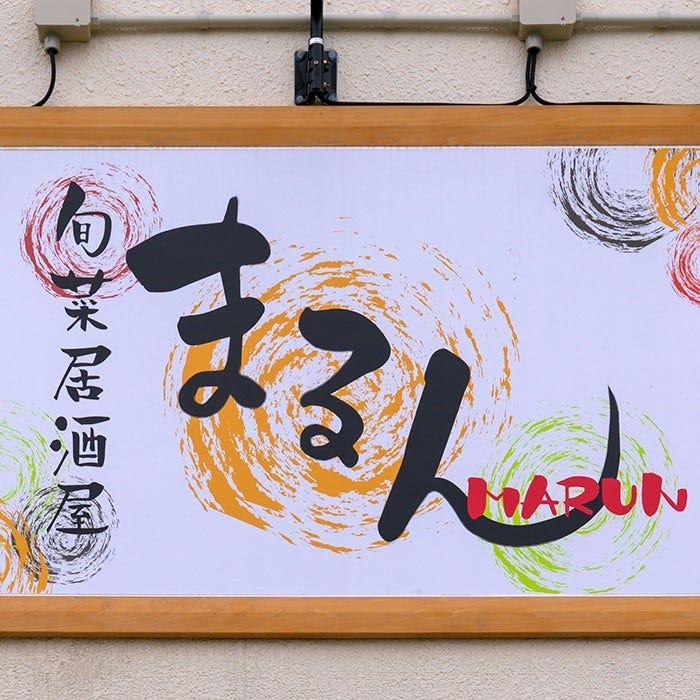 旬菜居酒屋
まるん
MARUN